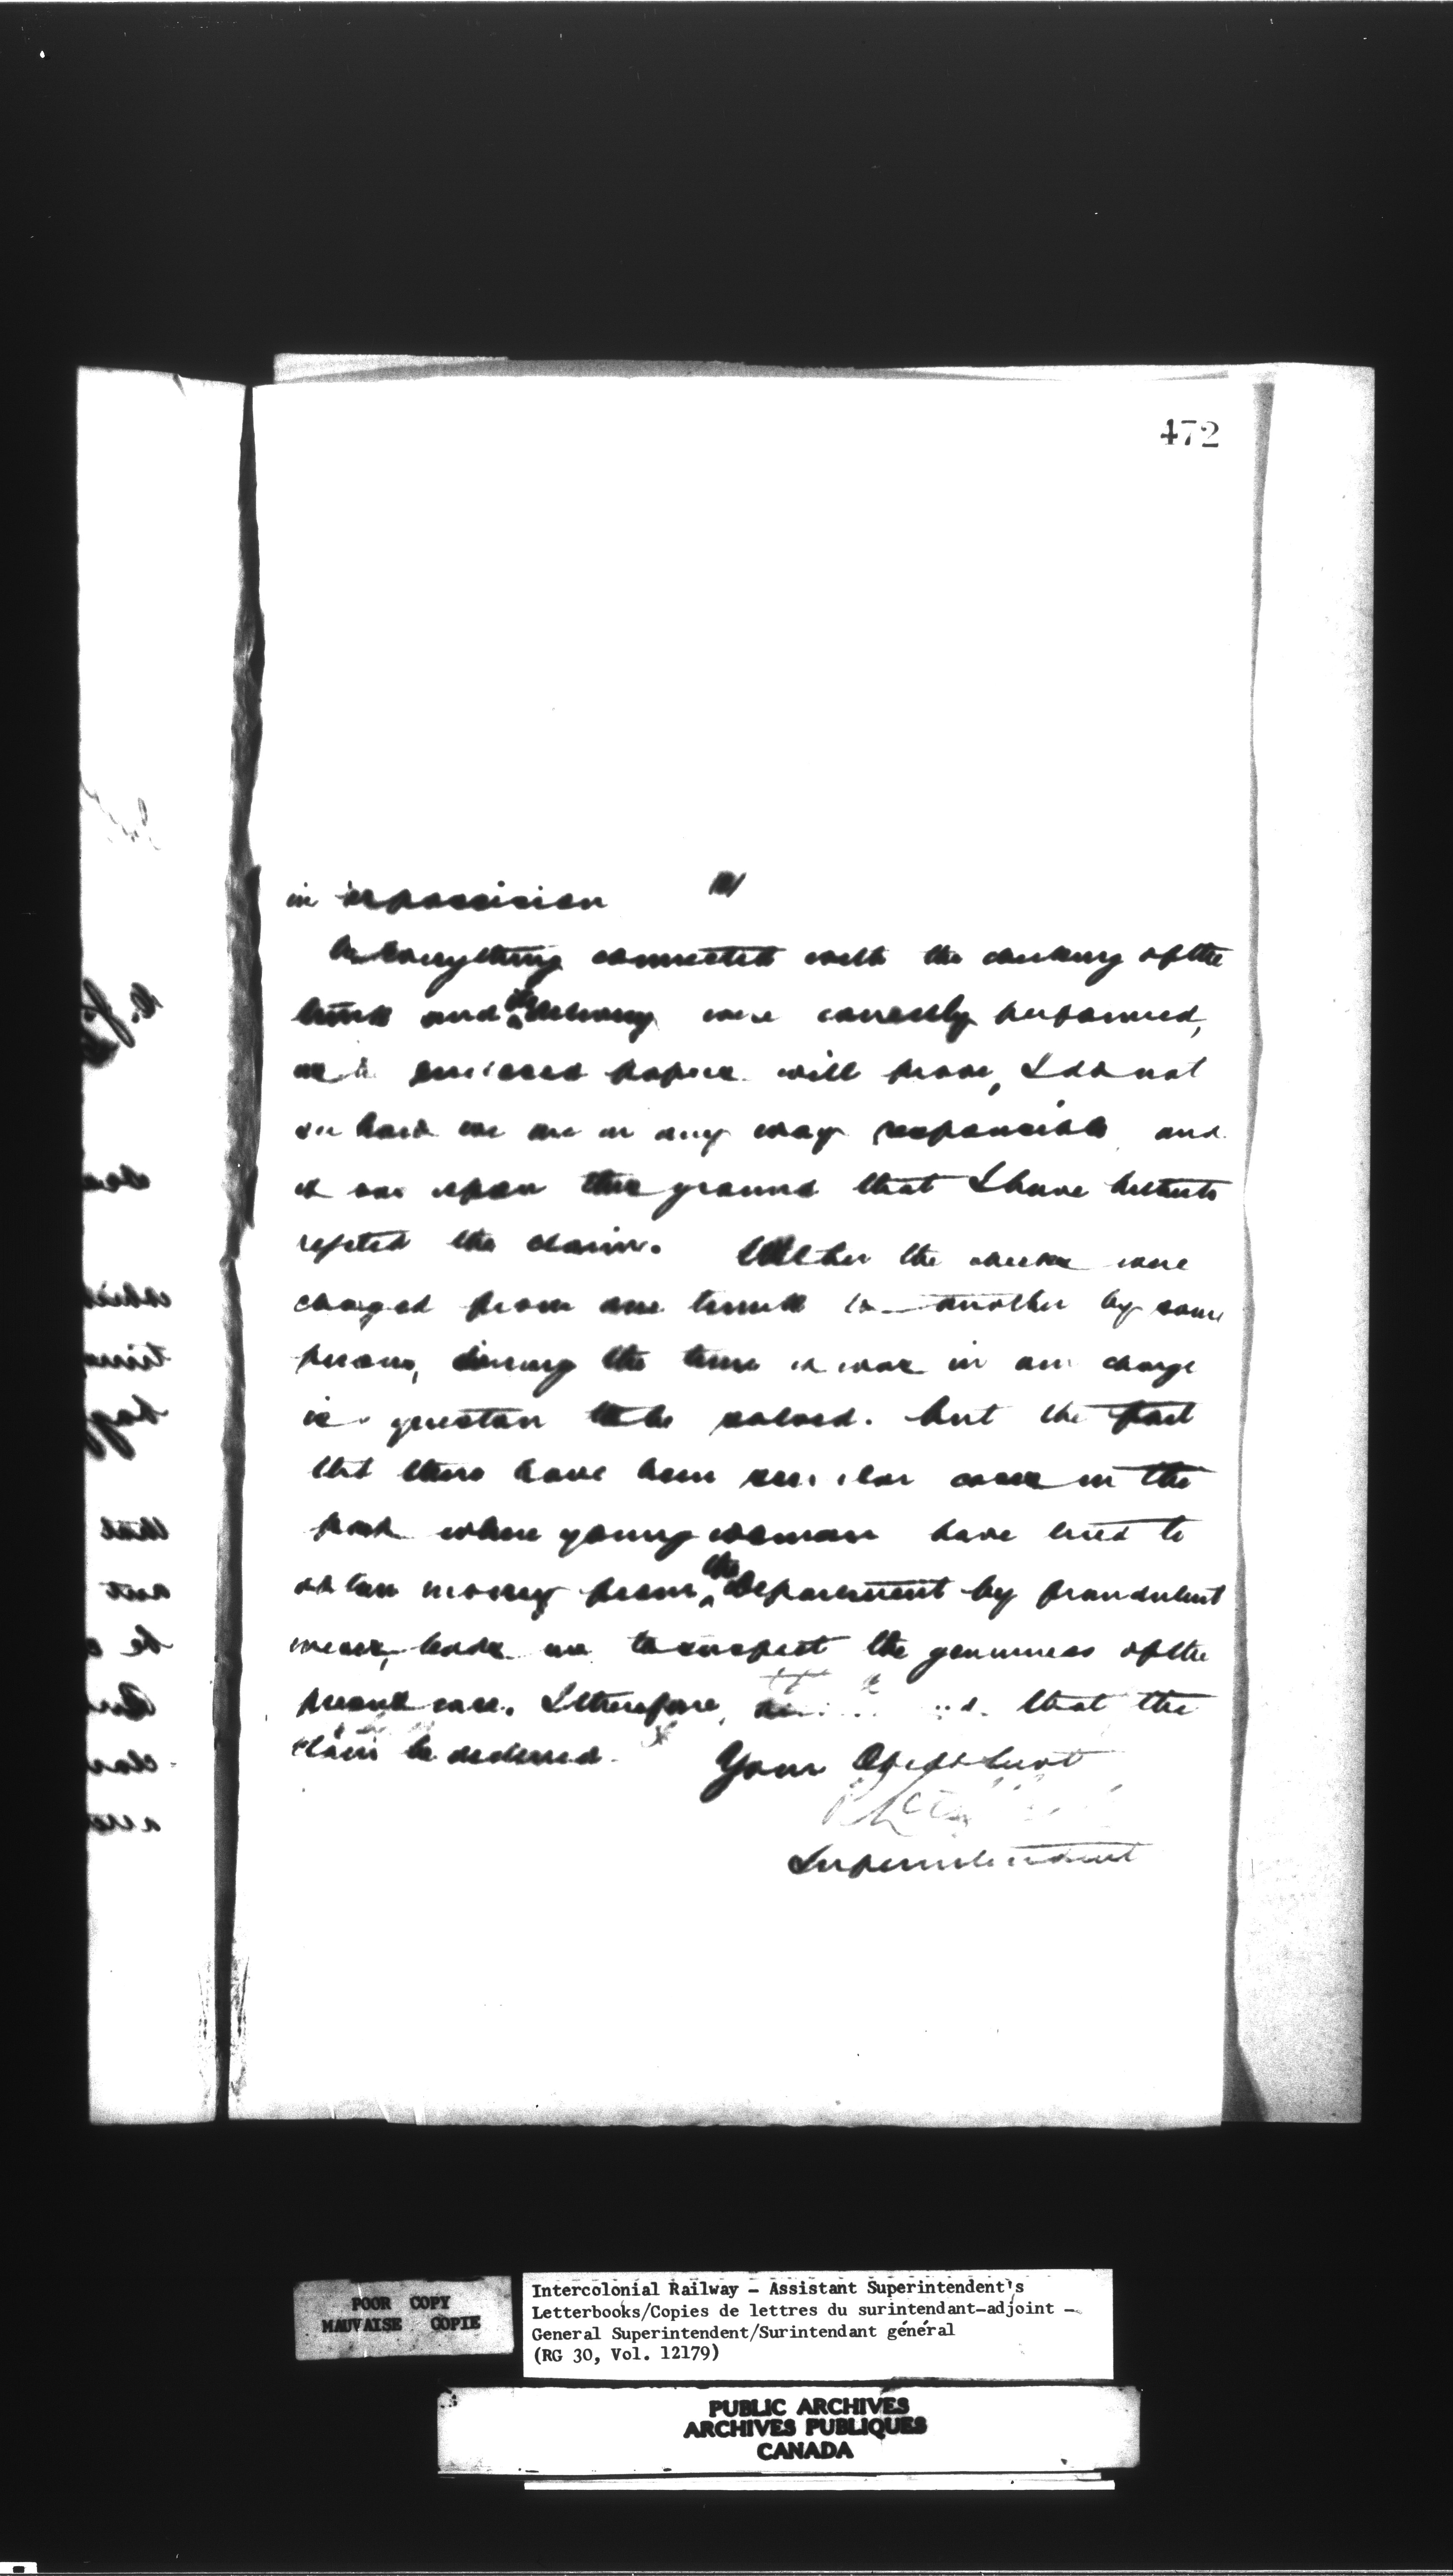 472
in possession
As everything connected with the checking of the
trunk and its delivery were correctly performed,
as enclosed papers will prove, I do not
see how we are in any way responsible and
it was upon this ground that I have hitherto
rejected the claim. Whether the checks were
changed from one trunk to another by some
persons, during the time it was in our charge
is question to be solved. but the fact
that there have been similar cases in the
past where young women have tried to
obtain money from the Department by fraudulent
means, leads me to suspect the genuiness of the
present case. I therefore that the
claim be declined.
Your Obedt Servt
Superintendent
POOR COPY
MAUVAISE COPIE
Intercolonial Railway - Assistant Superintendent's
Letterbooks/Copies de lettres du surintendant-adjoint -
General Superintendent/Surintendant général
(RG 30, Vol. 12179)
PUBLIC ARCHIVES
ARCHIVES PUBLIQUES
CANADA